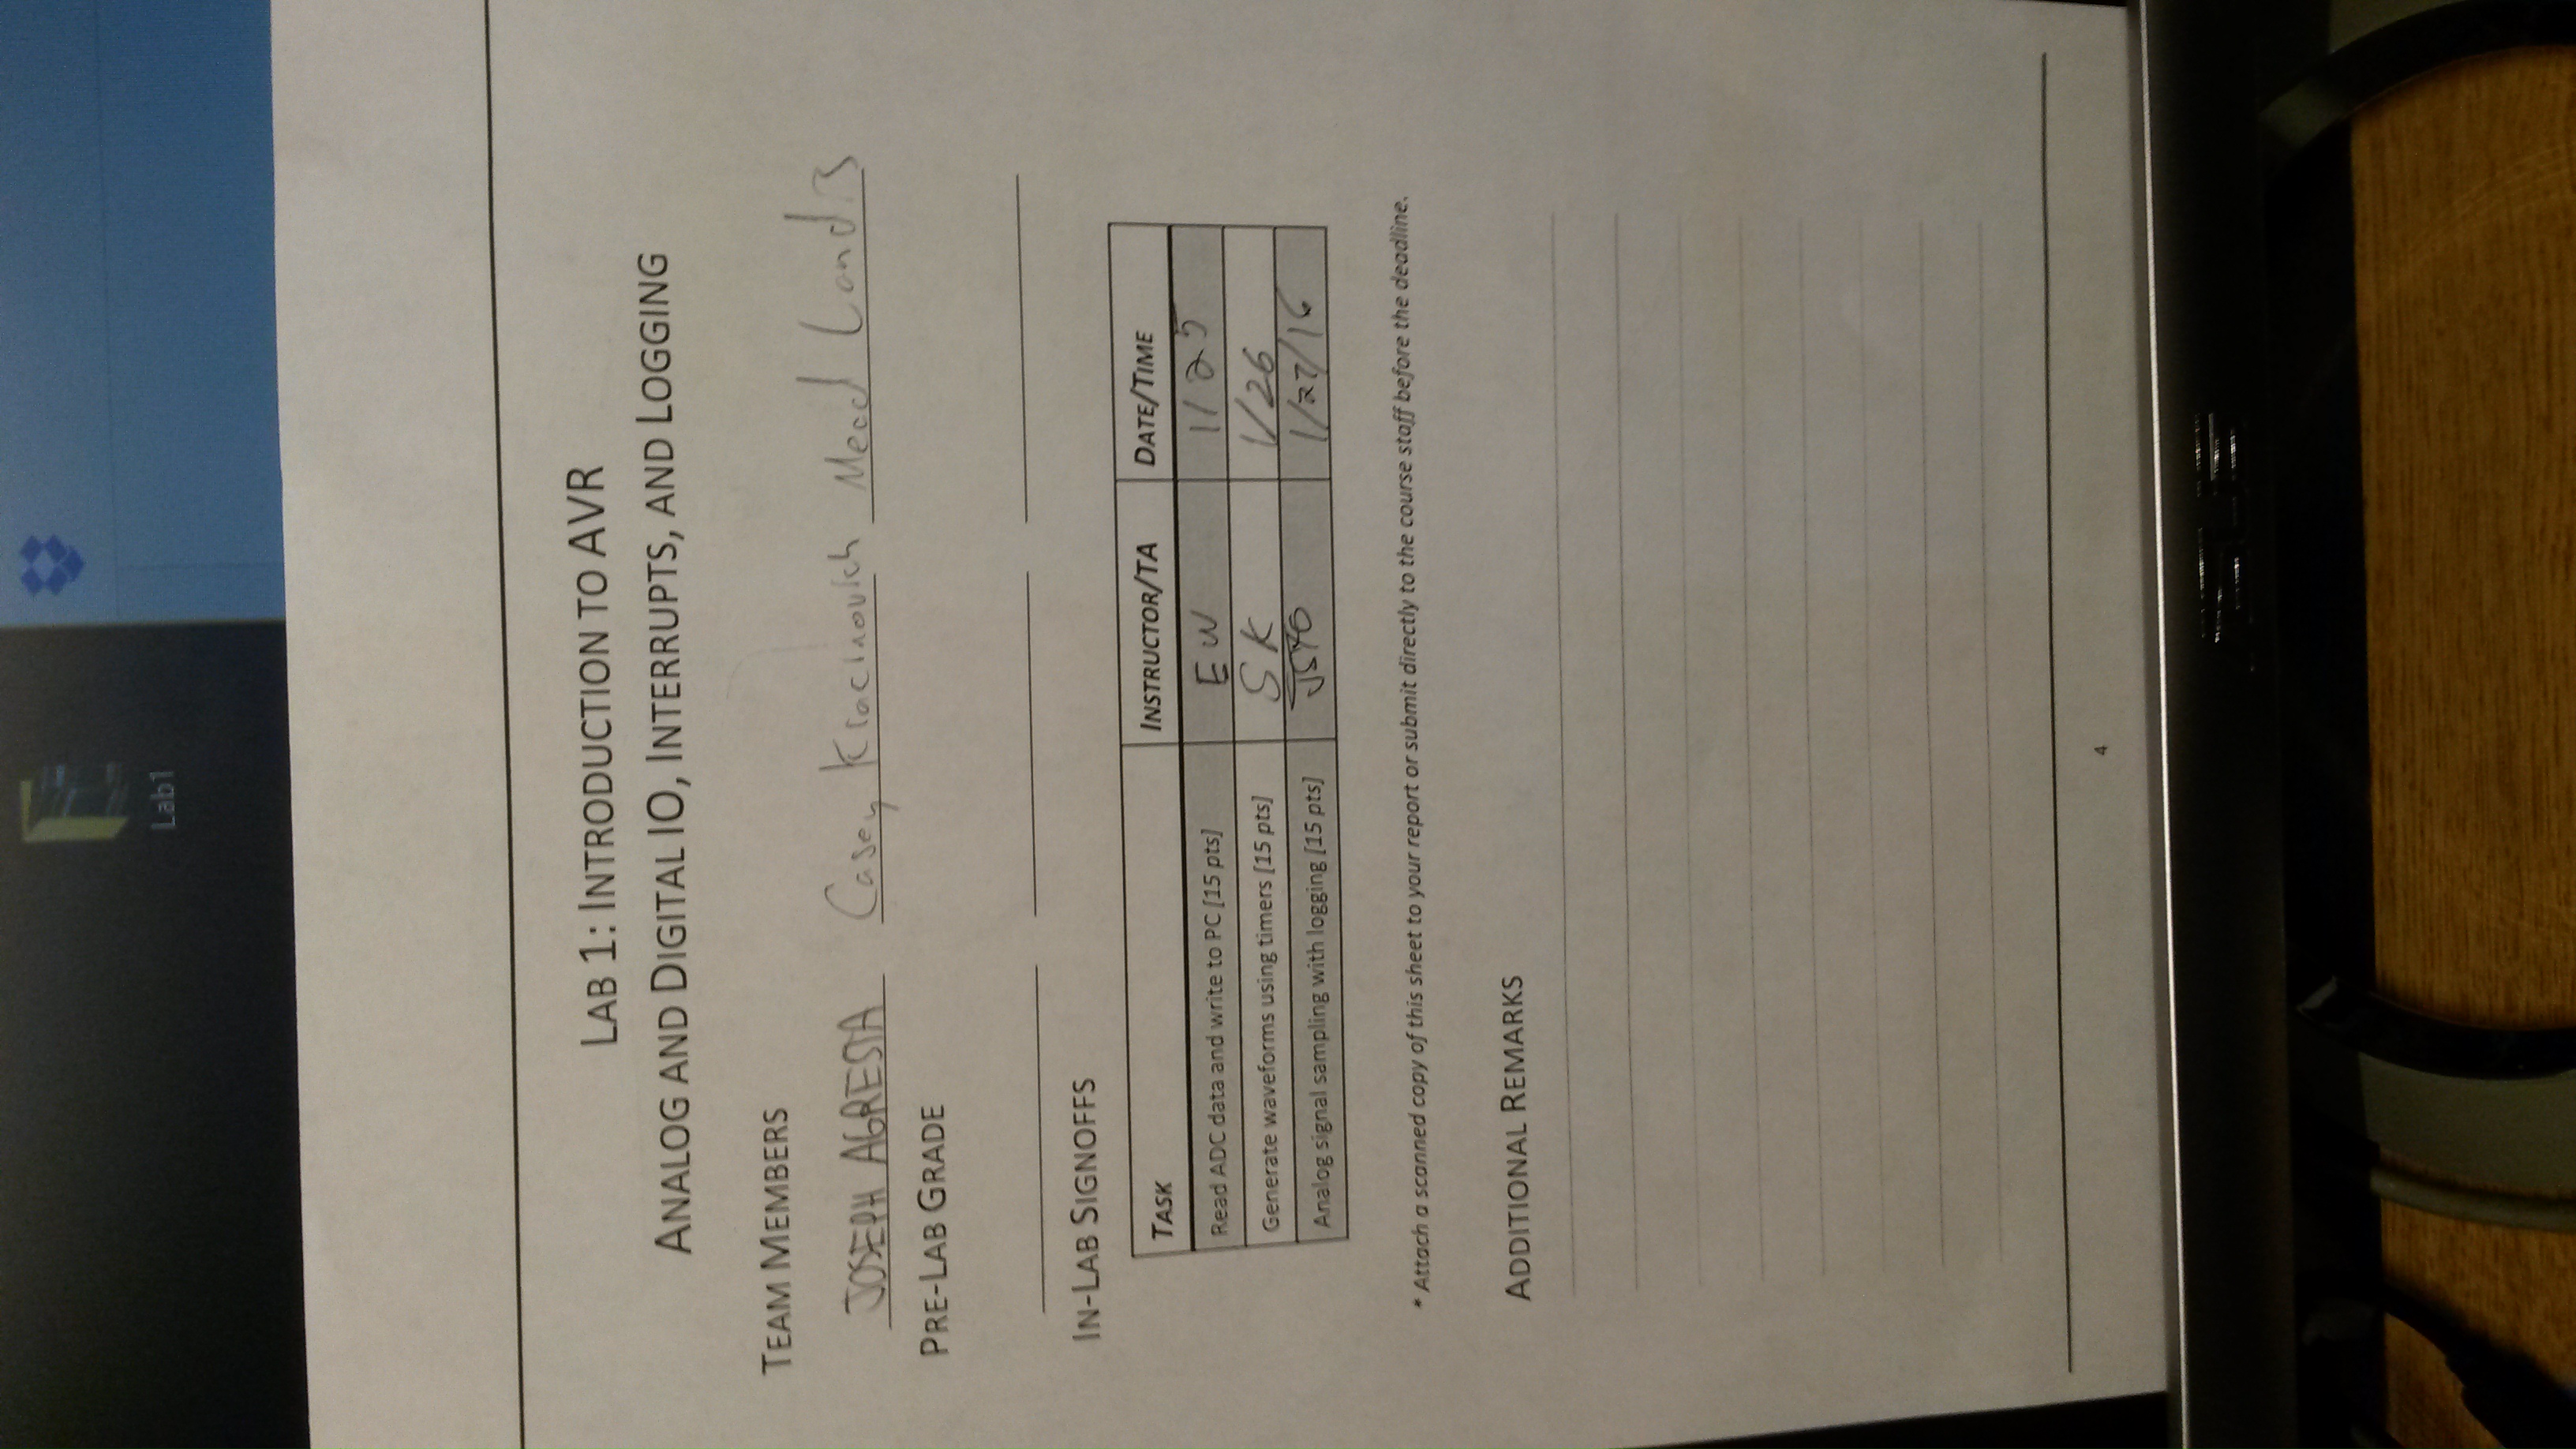 Lab1
LAB 1: INTRODUCTION TO AVR
ANALOG AND DIGITAL IO, INTERRUPTS, AND LOGGING
TEAM MEMBERS
JOSEPH AGRESTA Casey Kracinovich Mead Landis
PRE-LAB GRADE
IN-LAB SIGNOFFS
TASK INSTRUCTOR/TA DATE/TIME
Read ADC data and write to PC [15 pts] EW 1/25
Generate waveforms using timers [15 pts] SK 1/26
Analog signal sampling with logging [15 pts] 1/27/16
* Attach a scanned copy of this sheet to your report or submit directly to the course staff before the deadline.
ADDITIONAL REMARKS
4
ASUS